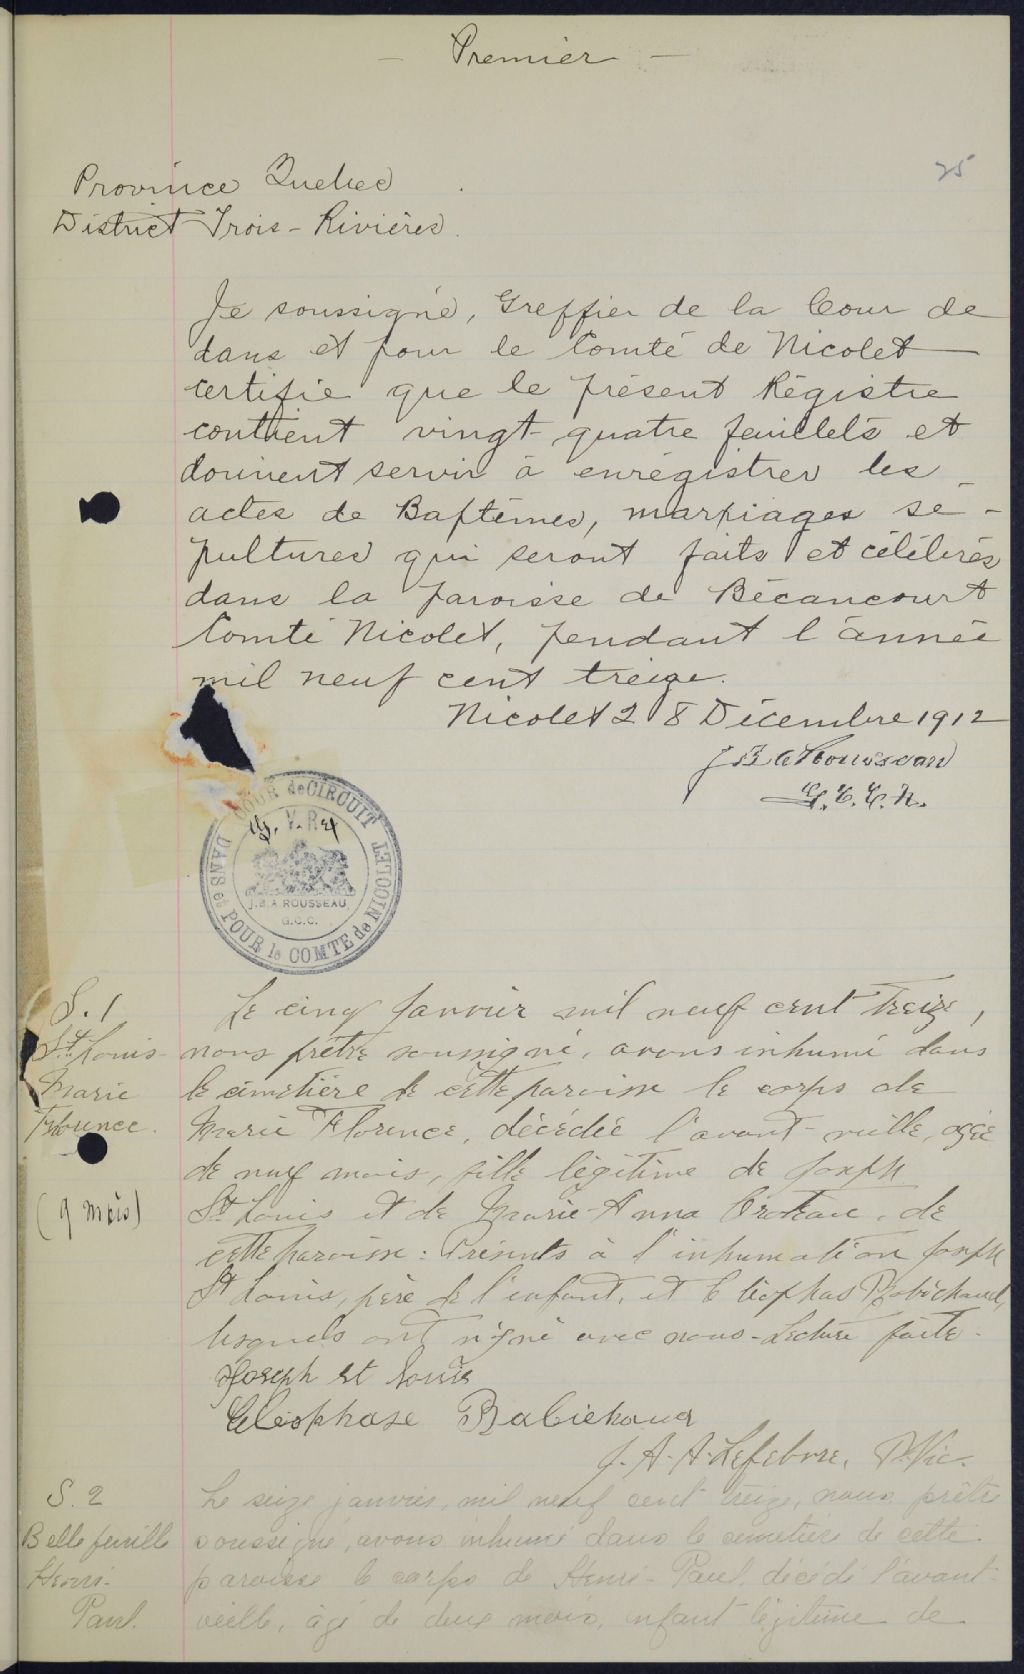 - Premier -
25
Province Quebec
District Trois-Rivières.
Je soussigné, Greffier de la Cour de
dans et pour le Comté de Nicolet
certifie que le présent Régistre
contient vingt-quatre feuillets et
doivent servir à enrégistrer les
actes de Baptêmes, marriages sé-
pultures qui seront faits et célébrés
dans la paroisse de Bécancourt
Comté Nicolet, pendant l'année
mil neuf cent treize.
Nicolet 28 Décembre 1912
J B A Rousseau
G.C.C.N.
COUR de CIRCUIT
DANS et POUR le COMTE de NICOLET
V. Rex
J.B.A ROUSSEAU,
G.C.C.
S. 1
St Louis
Marie
Florence.
(9 mois)
Le cinq Janvier mil neuf cent treize,
nous prêtre soussigné, avons inhumé dans
le cimetière de cette paroisse le corps de
Marie Florence, décédée l'avant-veille, agée
de neuf mois, fille légitime de Joseph
St Louis et de Marie-Anna Croteau, de
cette paroisse: Présents à l'inhumation Joseph
St Louis, père de l'enfant, et Cléophas Robichaud,
lesquels ont signé avec nous - Lecture faite.
Joseph St Louis
Cléophase Rabichaud
J. A. A. Lefebvre, P. Vic.
S. 2
Bellefeuille
Henri-
Paul.
Le seize janvier, mil neuf cent treize, nous prêtre
soussigné, avons inhumé dans le cimetière de cette
paroisse le corps de Henri-Paul, décédé l'avant-
veille, âgé de deux mois, enfant légitime de